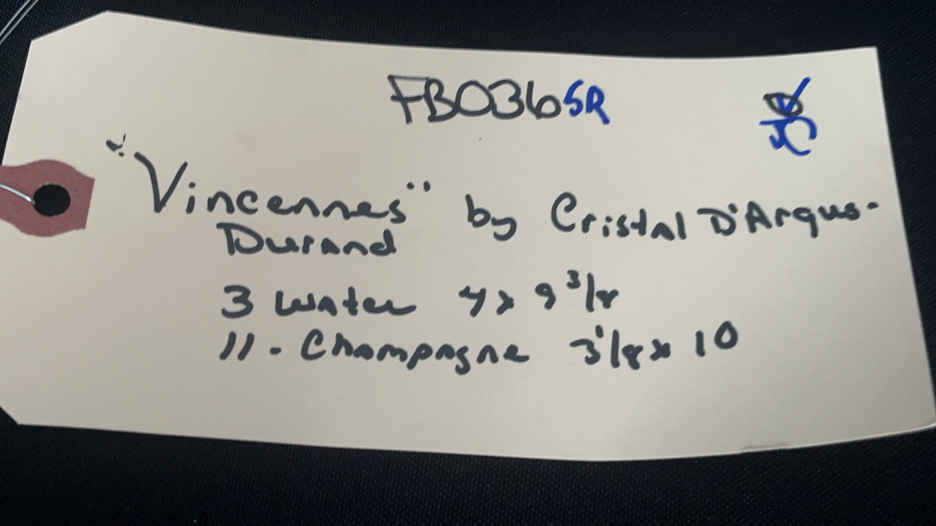 FB036SR
"Vincennes" by Cristal D'Arqus-
Durand
3 Water 4 x 9 3/8
11 - Champagne 3 1/8 x 10